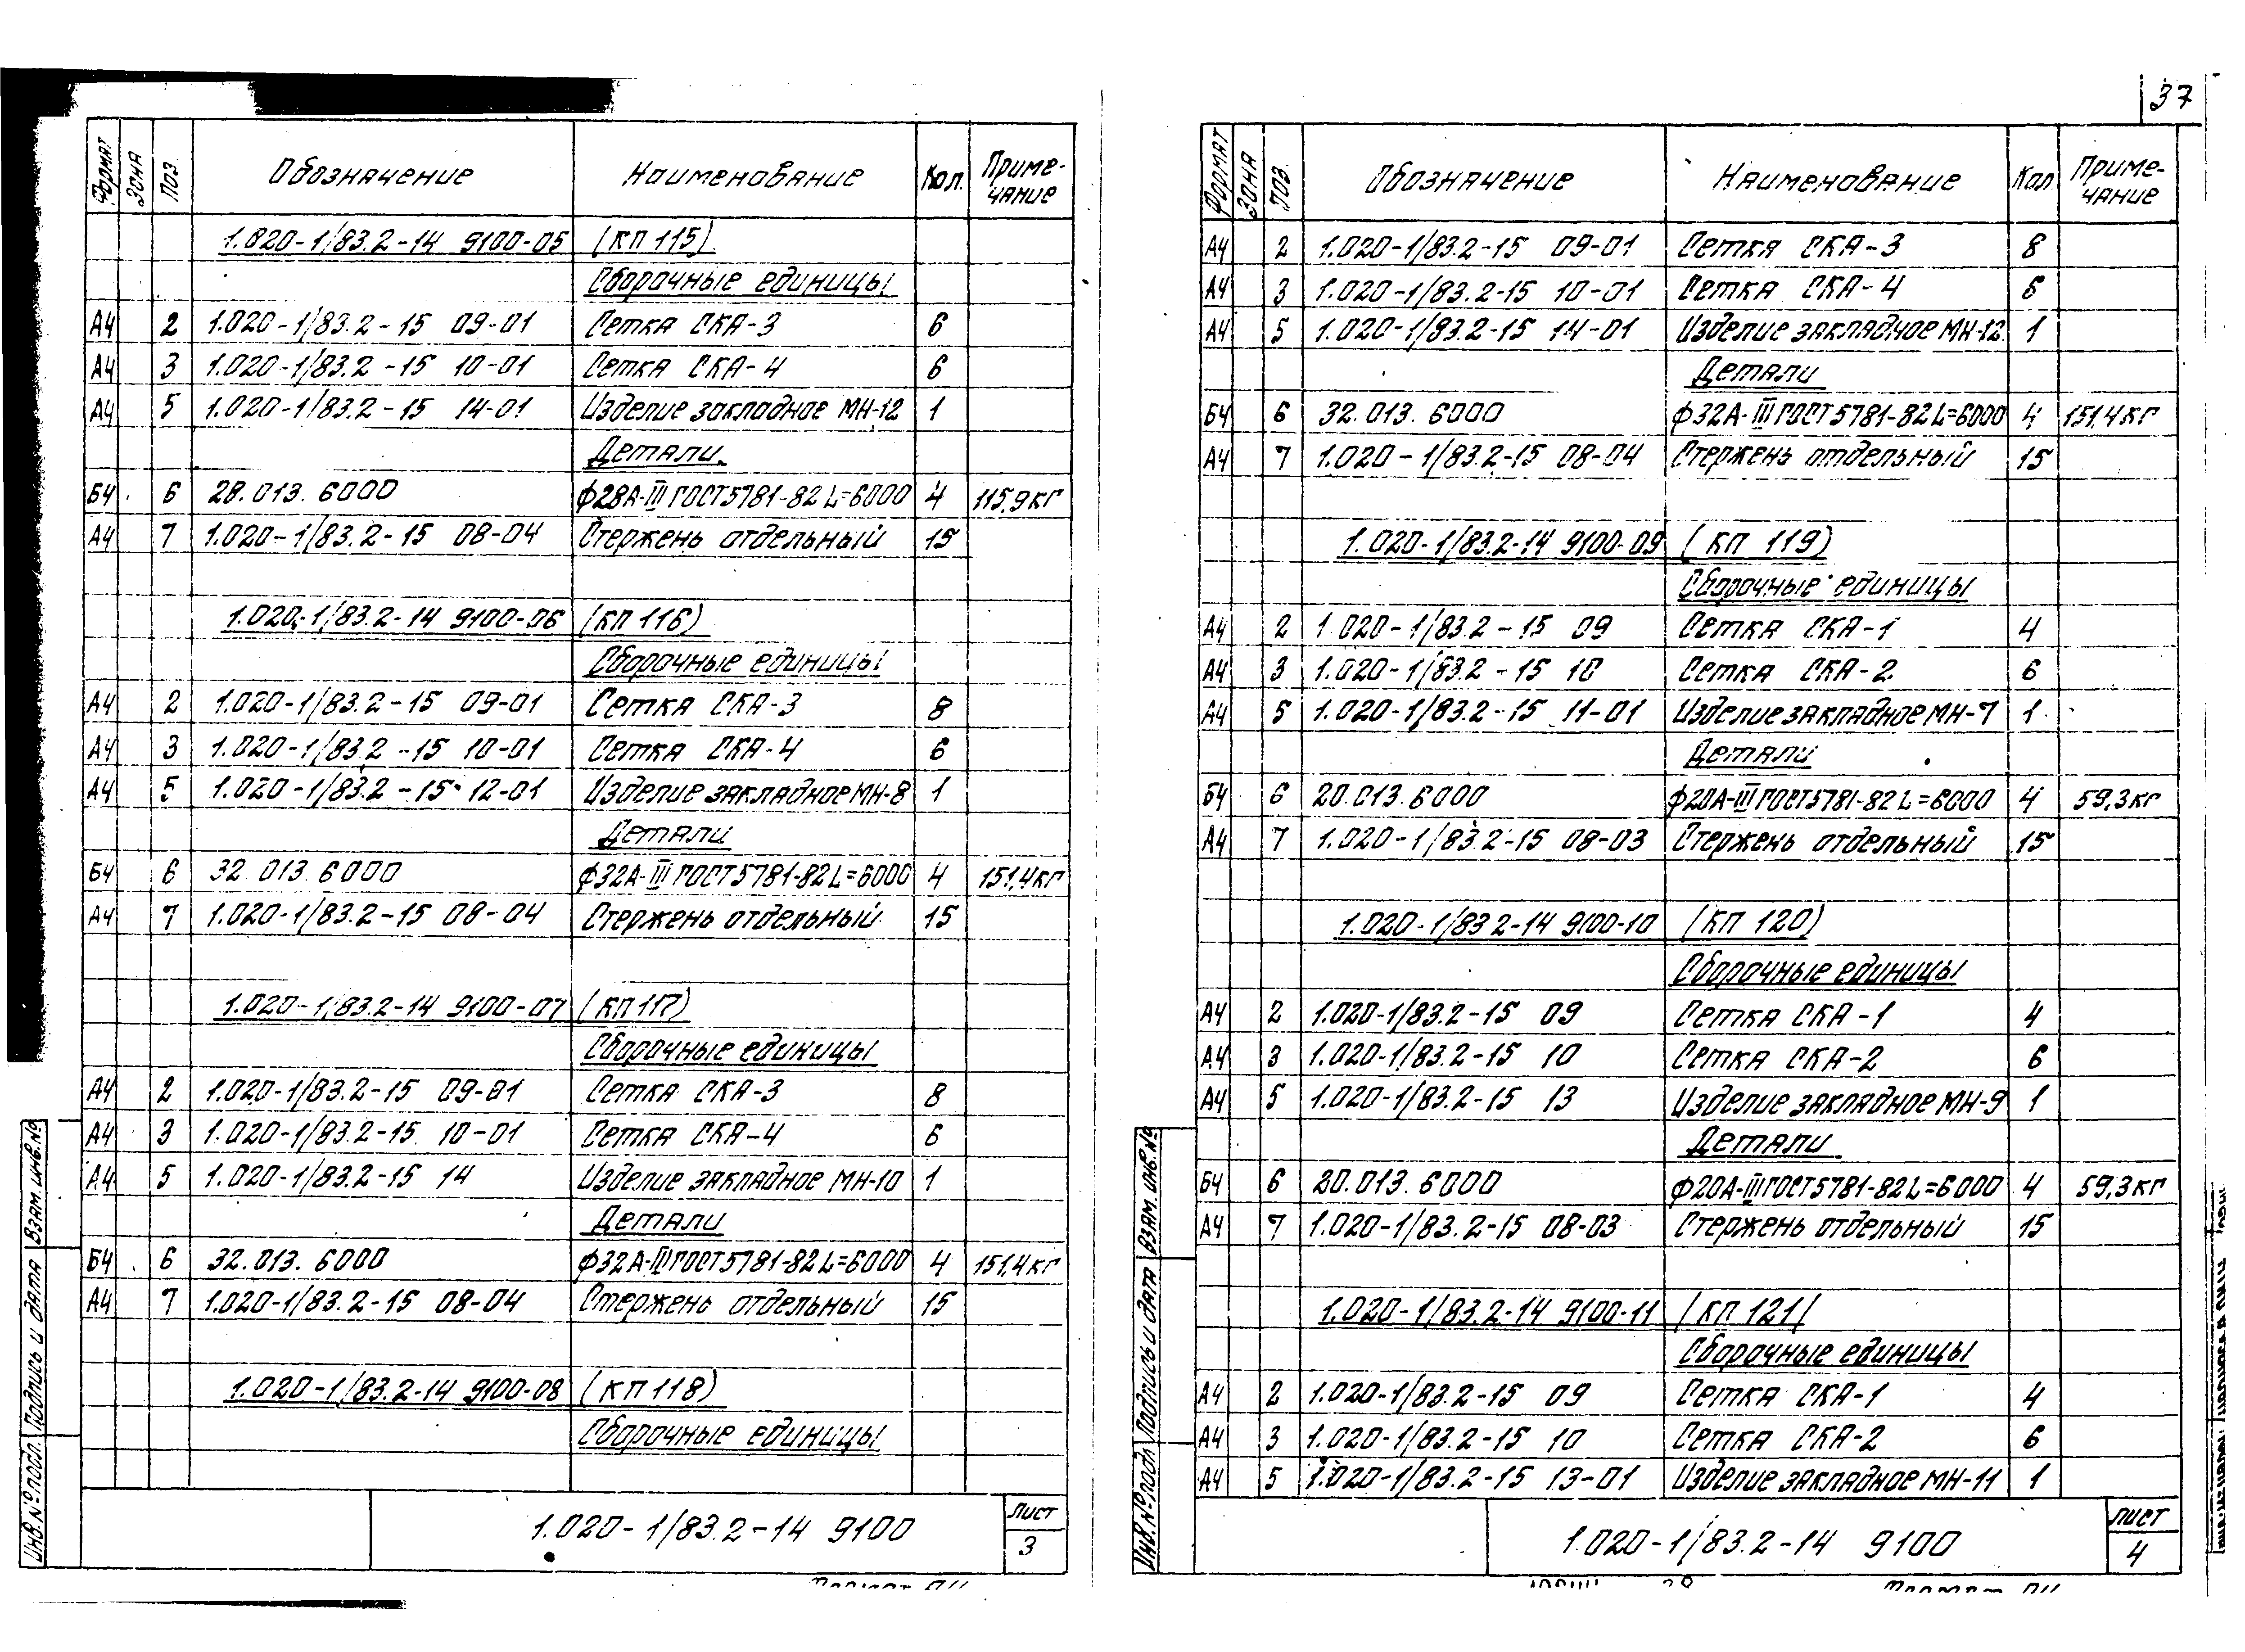 37
Формат Зона Поз. Обозначение Наименование Кол. Приме-
чание
1.020-1/83.2-14 9100-05 (КП 115)
Сборочные единицы
А4 2 1.020-1/83.2-15 09-01 Сетка СКА-3 6
А4 3 1.020-1/83.2-15 10-01 Сетка СКА-4 6
А4 5 1.020-1/83.2-15 14-01 Изделие закладное МН-12 1
Детали
Б4 6 28.013.6000 ф28А-III ГОСТ5781-82 L=6000 4 115,9кг
А4 7 1.020-1/83.2-15 08-04 Стержень отдельный 15
1.020-1/83.2-14 9100-06 (КП 116)
Сборочные единицы
А4 2 1.020-1/83.2-15 09-01 Сетка СКА-3 8
А4 3 1.020-1/83.2-15 10-01 Сетка СКА-4 6
А4 5 1.020-1/83.2-15 12-01 Изделие закладное МН-8 1
Детали
Б4 6 32.013.6000 ф32А-III ГОСТ5781-82 L=6000 4 151,4кг
А4 7 1.020-1/83.2-15 08-04 Стержень отдельный 15
1.020-1/83.2-14 9100-07 (КП 117)
Сборочные единицы
А4 2 1.020-1/83.2-15 09-01 Сетка СКА-3 8
А4 3 1.020-1/83.2-15 10-01 Сетка СКА-4 6
А4 5 1.020-1/83.2-15 14 Изделие закладное МН-10 1
Детали
Б4 6 32.013.6000 ф32А-III ГОСТ5781-82 L=6000 4 151,4кг
А4 7 1.020-1/83.2-15 08-04 Стержень отдельный 15
1.020-1/83.2-14 9100-08 (КП 118)
Сборочные единицы
Инв. № подл. Подпись и дата Взам. инв. №
1.020-1/83.2-14 9100
Лист
3
Формат Зона Поз. Обозначение Наименование Кол Приме-
чание
А4 2 1.020-1/83.2-15 09-01 Сетка СКА-3 8
А4 3 1.020-1/83.2-15 10-01 Сетка СКА-4 6
А4 5 1.020-1/83.2-15 14-01 Изделие закладное МН-12 1
Детали
Б4 6 32.013.6000 ф32А-III ГОСТ5781-82 L=6000 4 151,4кг
А4 7 1.020-1/83.2-15 08-04 Стержень отдельный 15
1.020-1/83.2-14 9100-09 (КП 119)
Сборочные единицы
А4 2 1.020-1/83.2-15 09 Сетка СКА-1 4
А4 3 1.020-1/83.2-15 10 Сетка СКА-2 6
А4 5 1.020-1/83.2-15 11-01 Изделие закладное МН-7 1
Детали
Б4 6 20.013.6000 ф20А-III ГОСТ5781-82 L=6000 4 59,3кг
А4 7 1.020-1/83.2-15 08-03 Стержень отдельный 15
1.020-1/83.2-14 9100-10 (КП 120)
Сборочные единицы
А4 2 1.020-1/83.2-15 09 Сетка СКА-1 4
А4 3 1.020-1/83.2-15 10 Сетка СКА-2 6
А4 5 1.020-1/83.2-15 13 Изделие закладное МН-9 1
Детали
Б4 6 20.013.6000 ф20А-III ГОСТ5781-82 L=6000 4 59,3кг
А4 7 1.020-1/83.2-15 08-03 Стержень отдельный 15
1.020-1/83.2-14 9100-11 (КП 121)
Сборочные единицы
А4 2 1.020-1/83.2-15 09 Сетка СКА-1 4
А4 3 1.020-1/83.2-15 10 Сетка СКА-2 6
А4 5 1.020-1/83.2-15 13-01 Изделие закладное МН-11 1
Инв. № подл Подпись и дата Взам. инв. №
1.020-1/83.2-14 9100
Лист
4